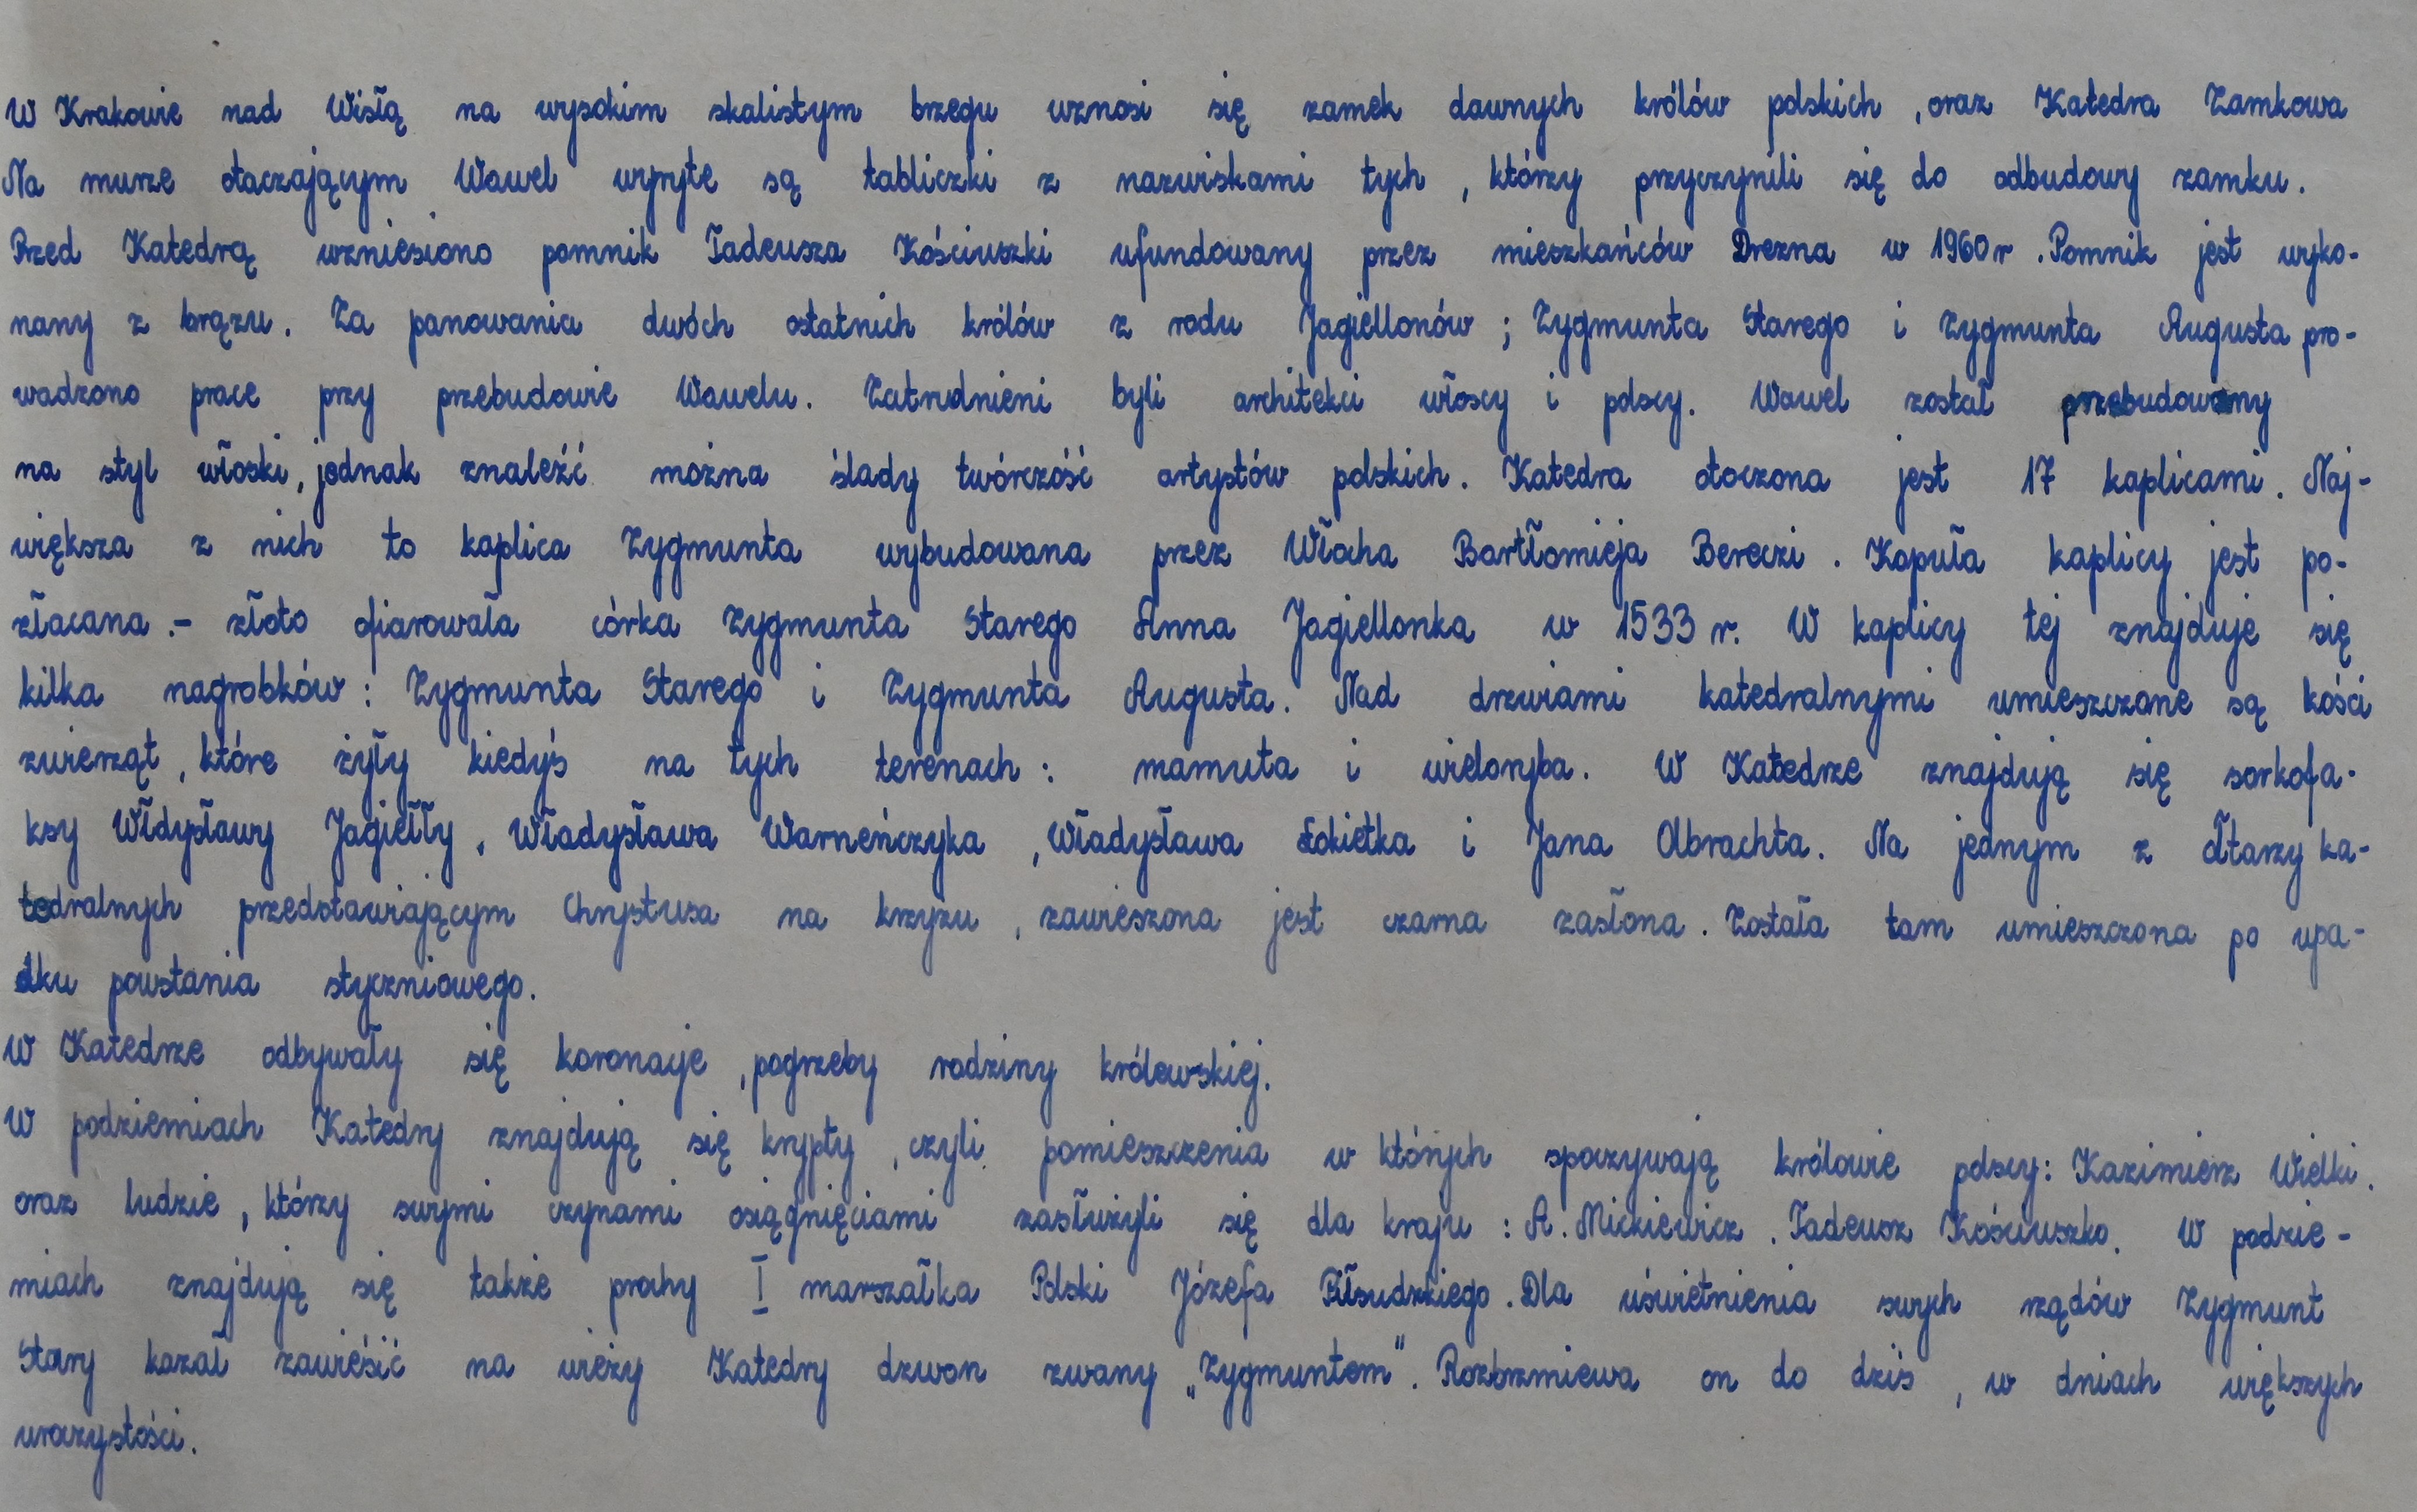 W Krakowie nad Wisłą na wysokim skalistym brzegu wznosi się zamek dawnych królów polskich , oraz Katedra Zamkowa
Na murze otaczającym Wawel wyryte są tabliczki z nazwiskami tych , którzy przyczynili się do odbudowy zamku .
Przed Katedrą wzniesiono pomnik Tadeusza Kościuszki ufundowany przez mieszkańców Drezna w 1960 r . Pomnik jest wyko-
nany z brązu . Za panowania dwóch ostatnich królów z rodu Jagiellonów ; Zygmunta Starego i Zygmunta Augusta pro-
wadzono prace przy przebudowie Wawelu . Zatrudnieni byli architekci włoscy i polscy . Wawel został przebudowany
na styl włoski , jednak znaleźć można ślady twórczość artystów polskich . Katedra otoczona jest 17 kaplicami . Naj-
większa z nich to kaplica Zygmunta wybudowana przez Włocha Bartłomieja Bereczi . Kopuła kaplicy jest po-
złacana . - złoto ofiarowała córka Zygmunta Starego Anna Jagiellonka w 1533 r. W kaplicy tej znajduje się
kilka nagrobków : Zygmunta Starego i Zygmunta Augusta . Nad drzwiami katedralnymi umieszczone są kości
zwierząt , które żyły kiedyś na tych terenach : mamuta i wieloryba . W Katedrze znajdują się sarkofa-
ksy Włdysławy Jagiełły , Władysława Warneńczyka , Władysława Łokietka i Jana Olbrachta . Na jednym z ołtarzy ka-
tedralnych przedstawiającym Chrystusa na krzyżu , zawieszona jest czarna zasłona . Została tam umieszczona po upa-
dku powstania styczniowego .
W Katedrze odbywały się koronacje , pogrzeby rodziny królewskiej .
W podziemiach Katedry znajdują się krypty , czyli pomieszczenia w których spoczywają królowie polscy : Kazimierz Wielki .
oraz ludzie , którzy swymi czynami osiągnięciami zasłużyli się dla kraju : A . Mickiewicz . Tadeusz Kościuszko . W podzie-
miach znajdują się także prochy I marszałka Polski Józefa Piłsudzkiego . Dla uświetnienia swych rządów Zygmunt
Stary kazał zawieśić na wieży Katedry dzwon zwany „Zygmuntem" . Rozbrzmiewa on do dziś , w dniach większych
uroczystości .